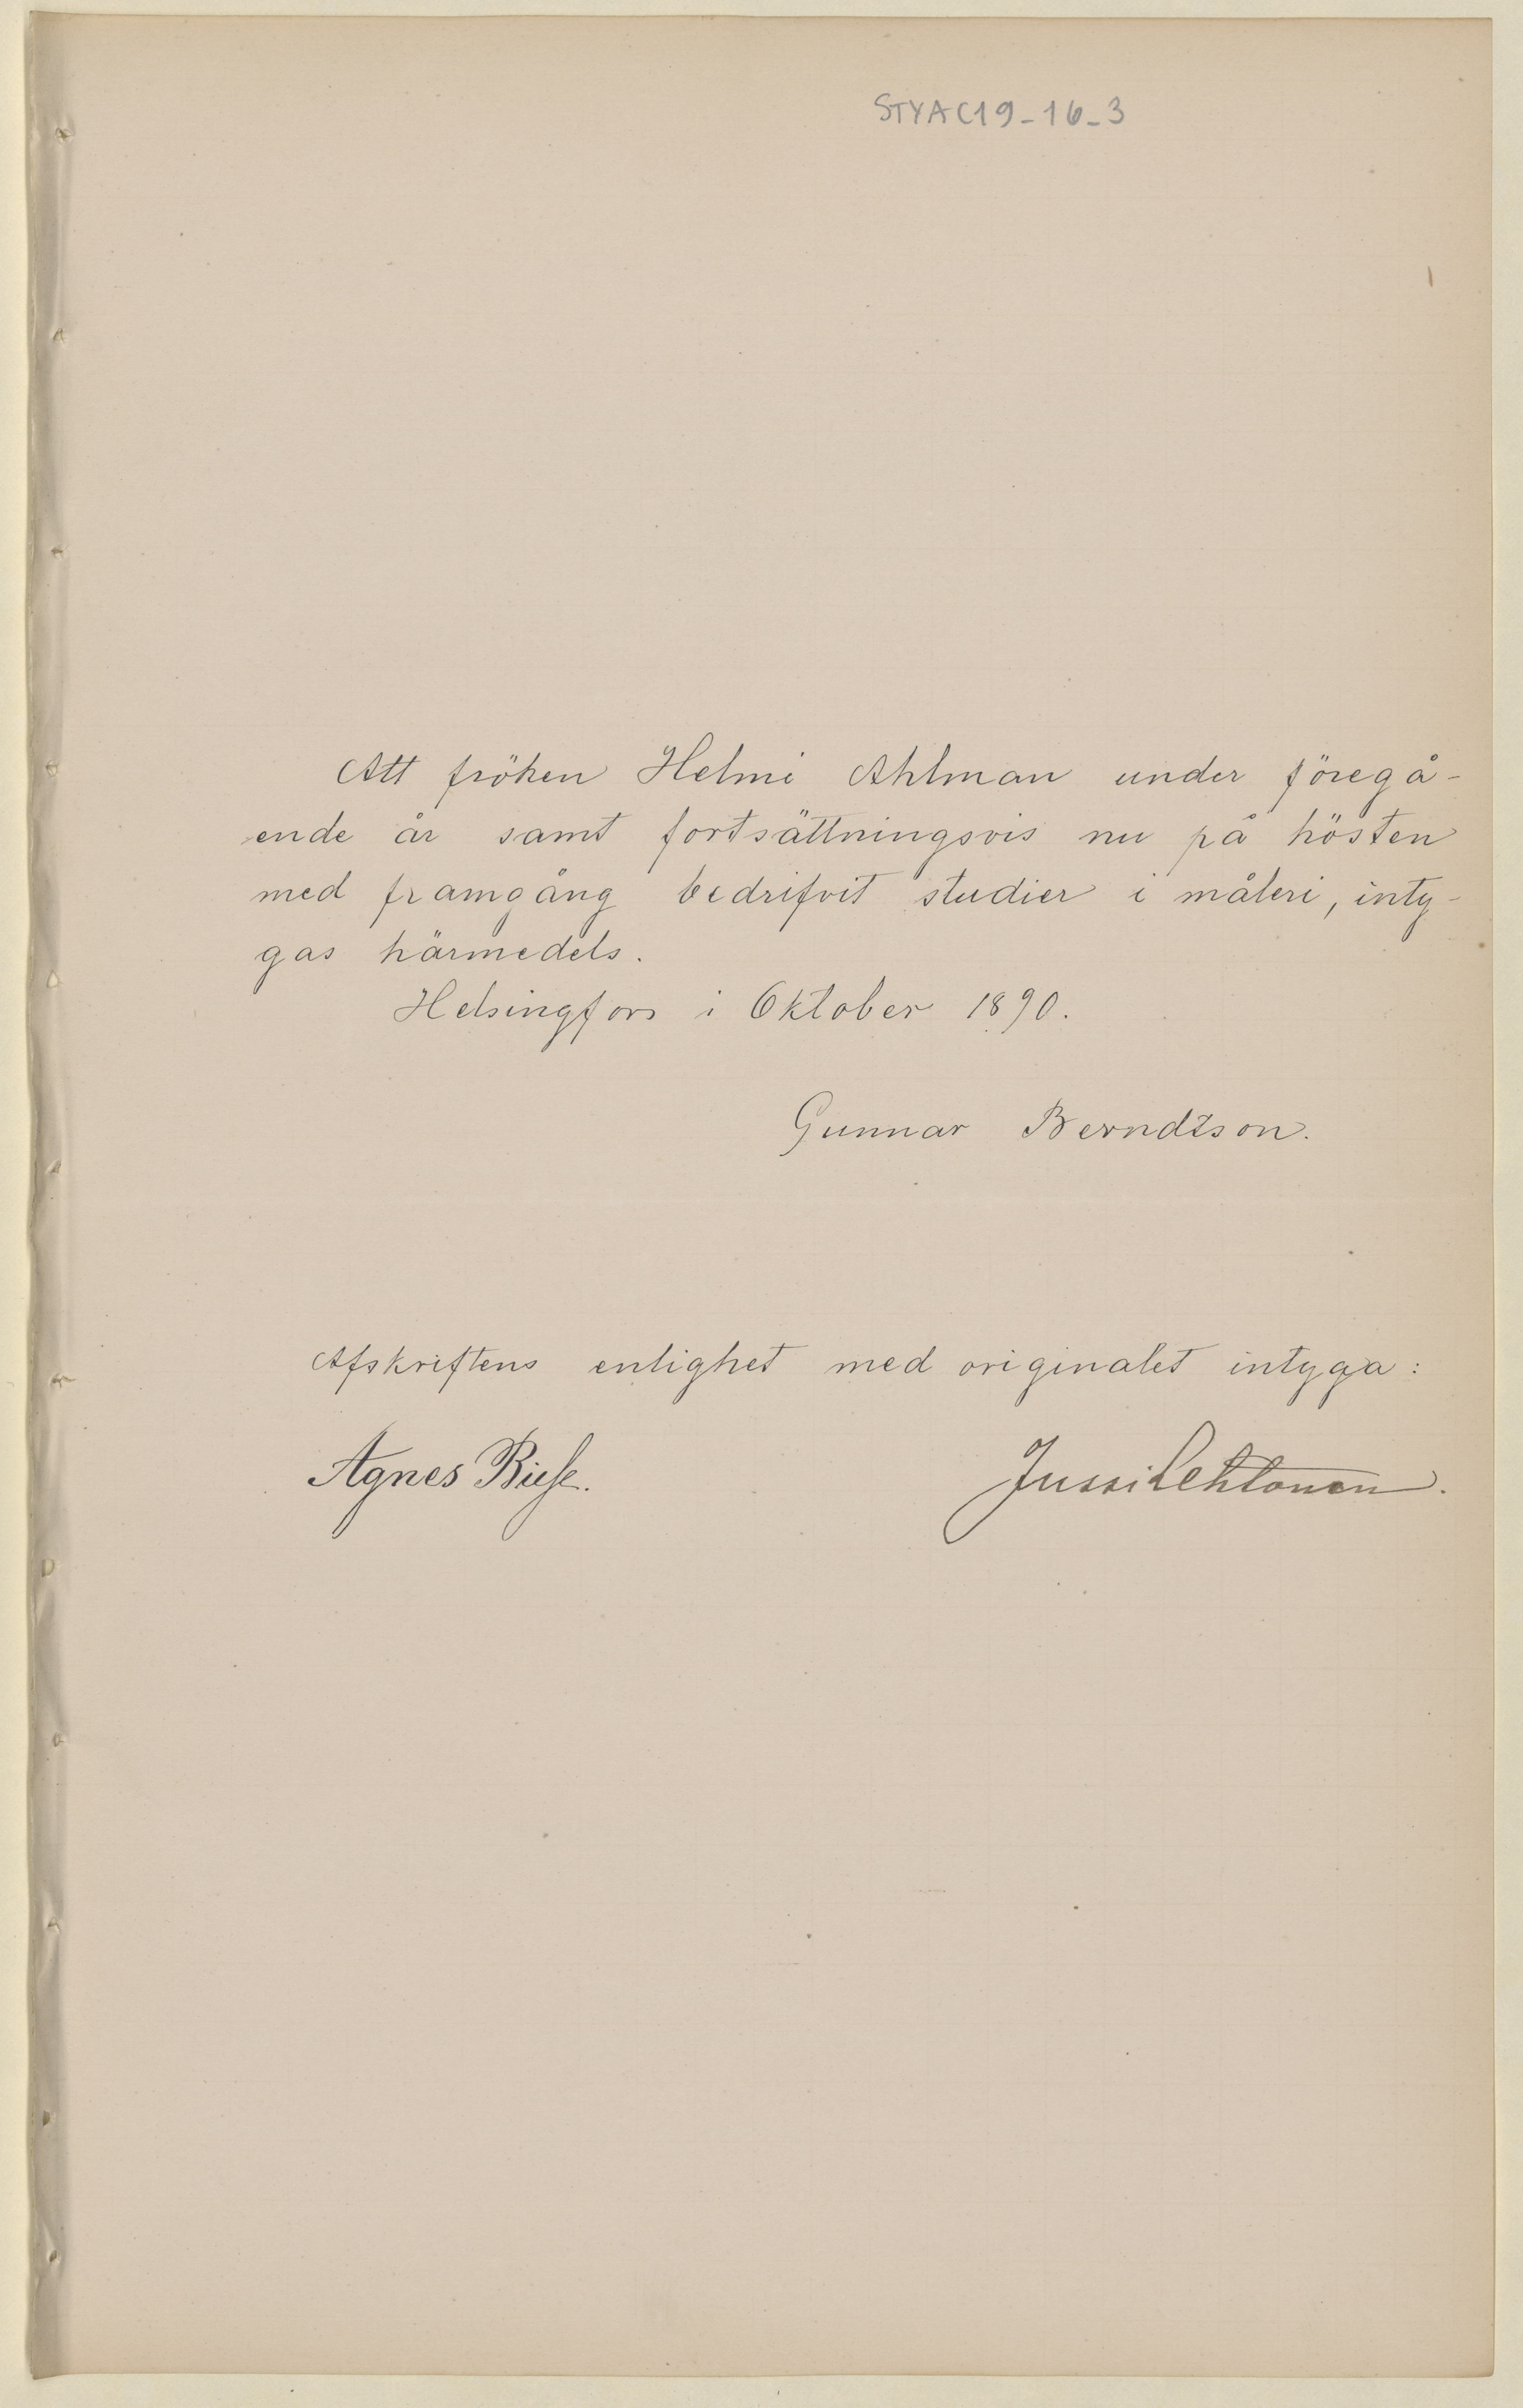 STYA C19-16-3
Att fröken Helmi Ahlman under föregå-
ende år samt fortsättningsvis nu på hösten
med framgång bedrifvit studier i måleri, inty-
gas härmedels.
Helsingfors i Oktober 1890.
Gunnar Berndtson.
Afskriftens enlighet med originalet intyga:
Agnes Biese.
Jussi Lehtonen.